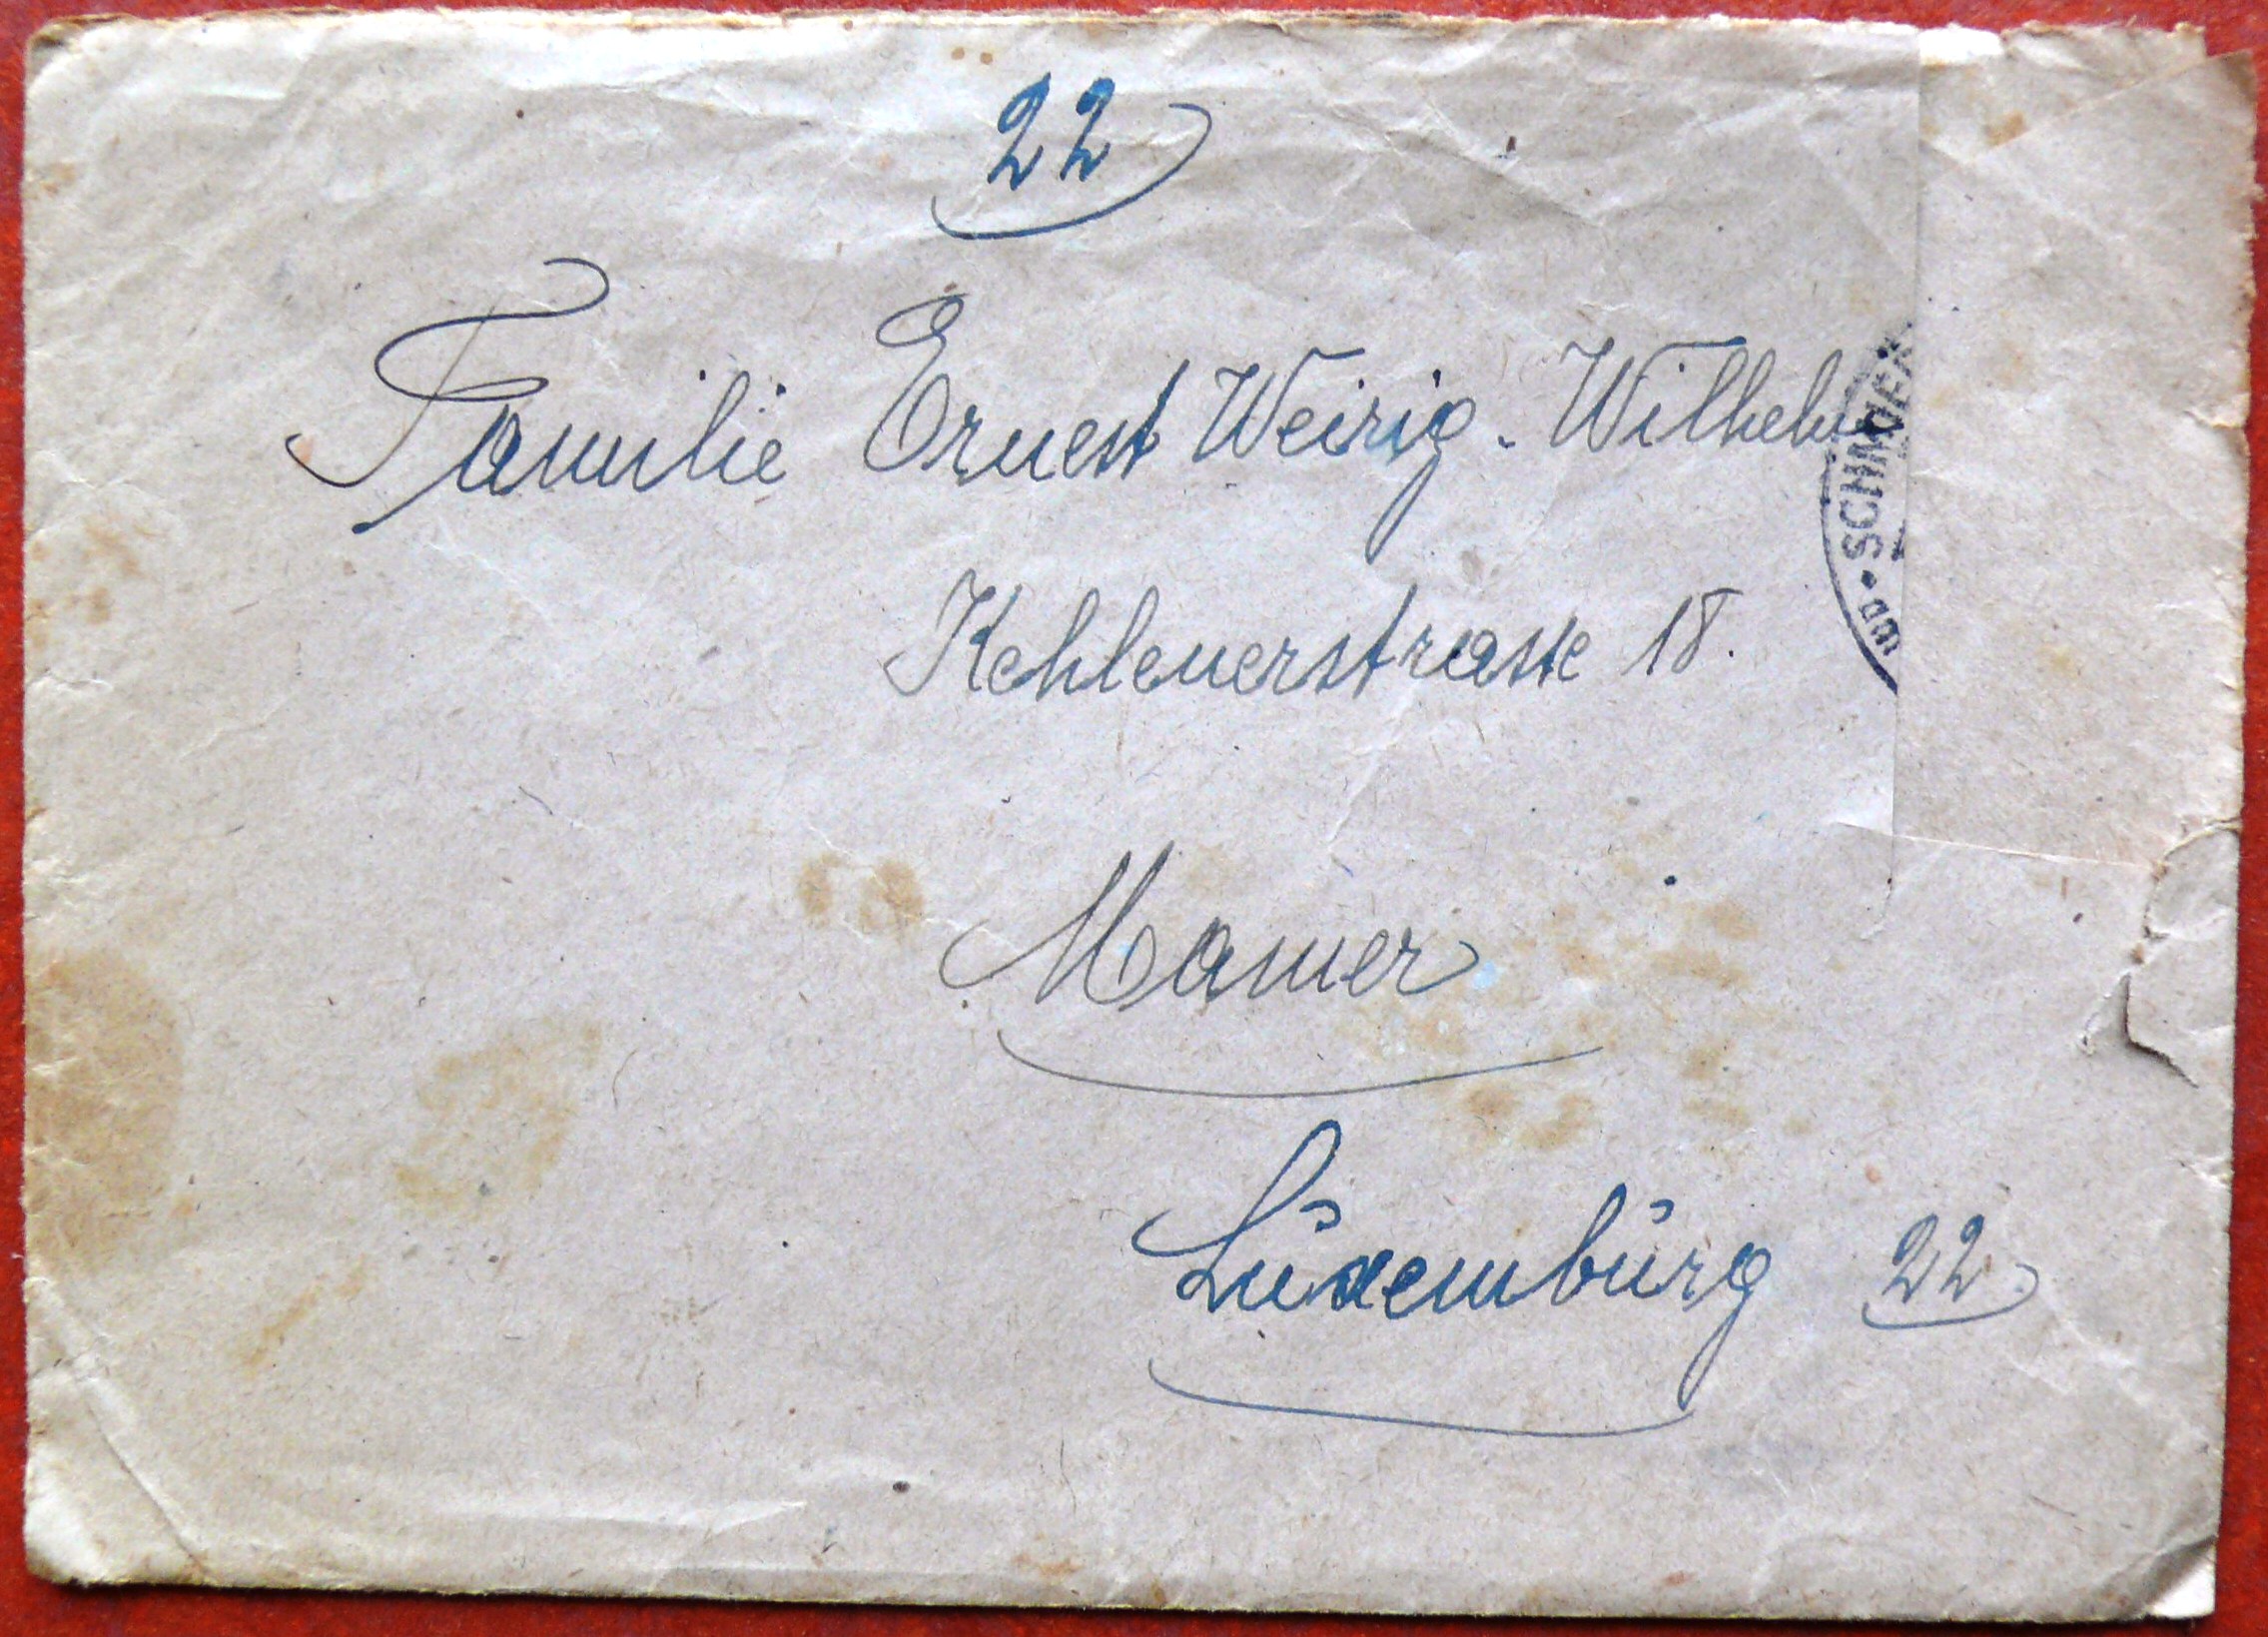 22
Familie Ernest Weirig. Wilhelm
Kehlenerstrasse 18.
Mamer
Luxemburg 22